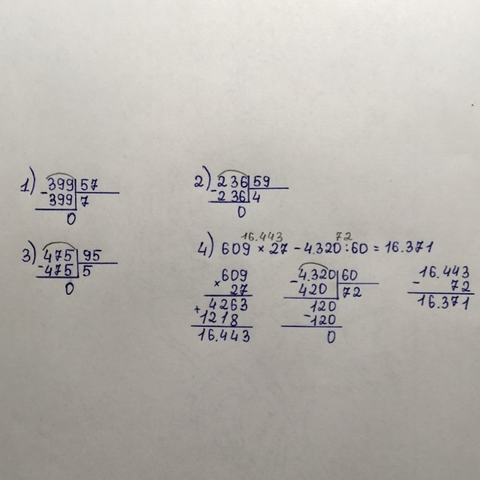 1) 399 57
- 399 7
0
2) 236 59
- 236 4
0
3) 475 95
- 475 5
0
16.443 72
4) 609 × 27 - 4.320 : 60 = 16.371
609
× 27
4263
+ 1218
16.443
4.320 60
- 420 72
120
- 120
0
16.443
- 72
16.371